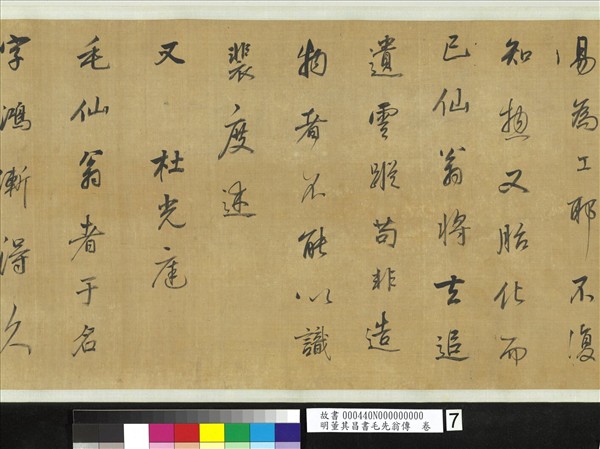 湯為工耶不復
知擾又胎化而
已仙翁將去追
遺雲蹤苟非造
物者不能以識
裴度述
又 杜光庭
毛仙翁者于名
字鴻漸得久
故書 000440N000000000
明董其昌書毛先翁傳 卷
7